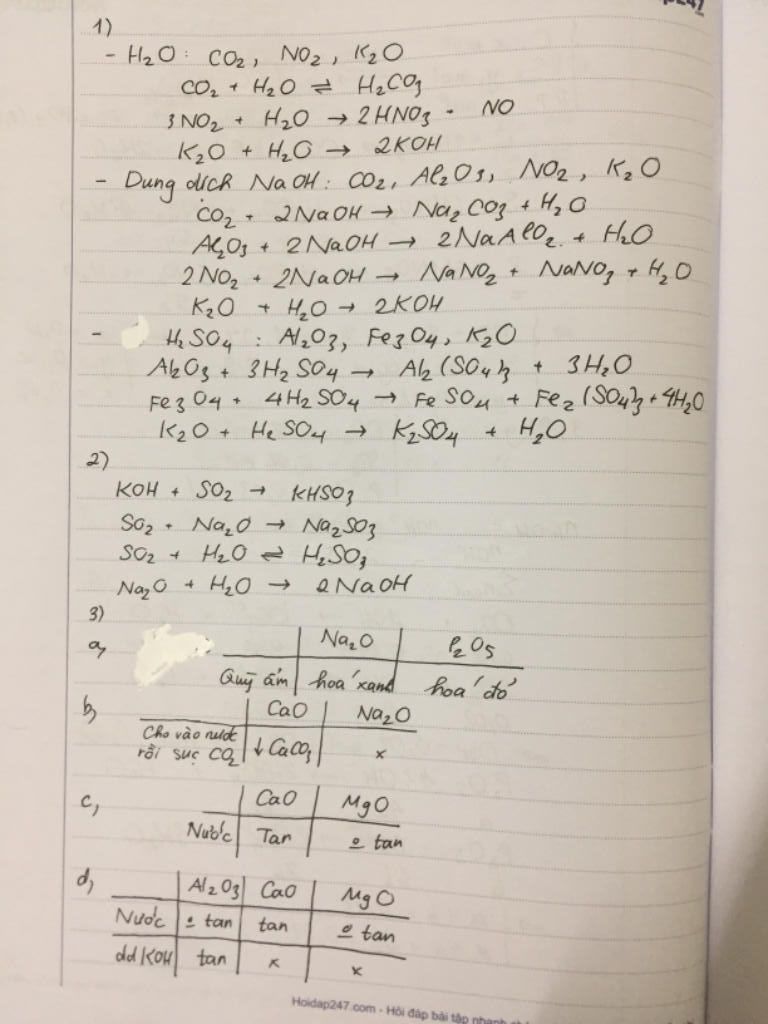 1)
- H₂O : CO₂, NO₂, K₂O
CO₂ + H₂O ⇌ H₂CO₃
3NO₂ + H₂O → 2HNO₃ - NO
K₂O + H₂O → 2KOH
- Dung dịch NaOH : CO₂, Al₂O₃, NO₂, K₂O
CO₂ + 2NaOH → Na₂CO₃ + H₂O
Al₂O₃ + 2NaOH → 2NaAlO₂ + H₂O
2NO₂ + 2NaOH → NaNO₂ + NaNO₃ + H₂O
K₂O + H₂O → 2KOH
- H₂SO₄ : Al₂O₃, Fe₃O₄, K₂O
Al₂O₃ + 3H₂SO₄ → Al₂(SO₄)₃ + 3H₂O
Fe₃O₄ + 4H₂SO₄ → FeSO₄ + Fe₂(SO₄)₃ + 4H₂O
K₂O + H₂SO₄ → K₂SO₄ + H₂O
2)
KOH + SO₂ → KHSO₃
SO₂ + Na₂O → Na₂SO₃
SO₂ + H₂O ⇌ H₂SO₃
Na₂O + H₂O → 2NaOH
3)
a, Na₂O P₂O₅
Quỳ ẩm hoá xanh hoá đỏ
b, CaO Na₂O
Cho vào nước
rồi sục CO₂ ↓CaCO₃ x
c, CaO MgO
Nước Tan o tan
d, Al₂O₃ CaO MgO
Nước o tan tan o tan
dd KOH tan x x
Hoidap247.com - Hỏi đáp bài tập nhanh